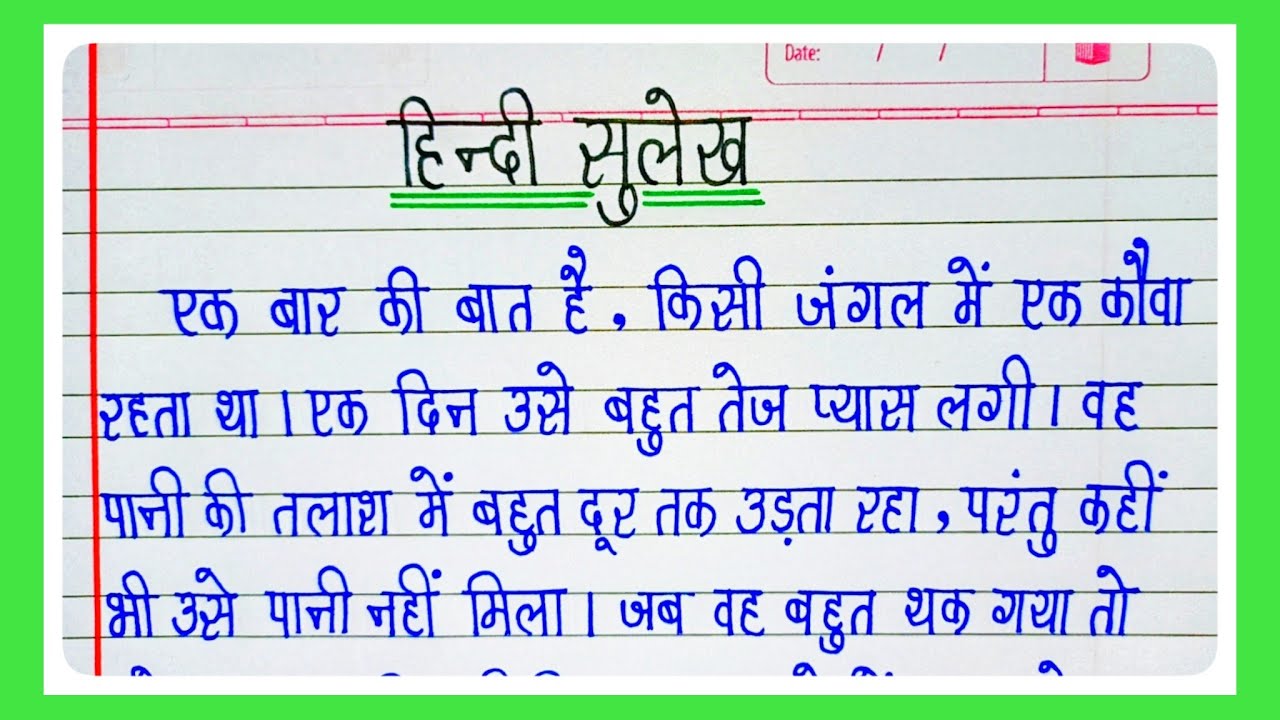 Date: / /
हिन्दी सुलेख
एक बार की बात है, किसी जंगल में एक कौवा
रहता था। एक दिन उसे बहुत तेज प्यास लगी। वह
पानी की तलाश में बहुत दूर तक उड़ता रहा, परंतु कहीं
भी उसे पानी नहीं मिला। जब वह बहुत थक गया तो